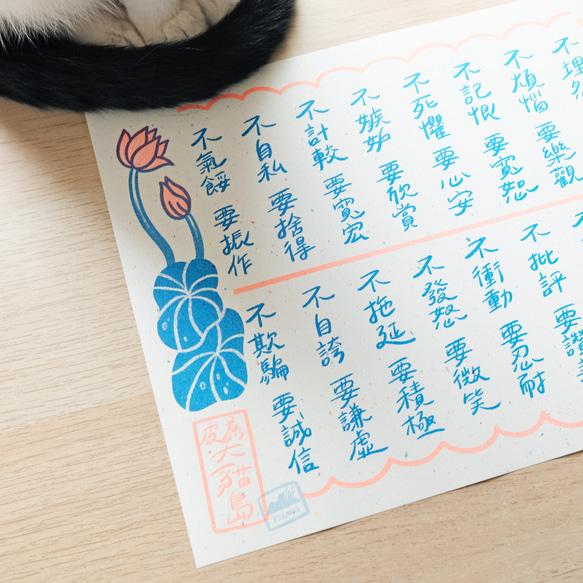 不埋
不煩惱 要樂觀
不記恨 要寬恕
不死懼 要心安
不嫉妒 要欣賞
不計較 要寬宏
不自私 要捨得
不氣餒 要振作
不批評 要讚
不衝動 要忍耐
不發怒 要微笑
不拖延 要積極
不自誇 要謙虛
不欺騙 要誠信
貓島